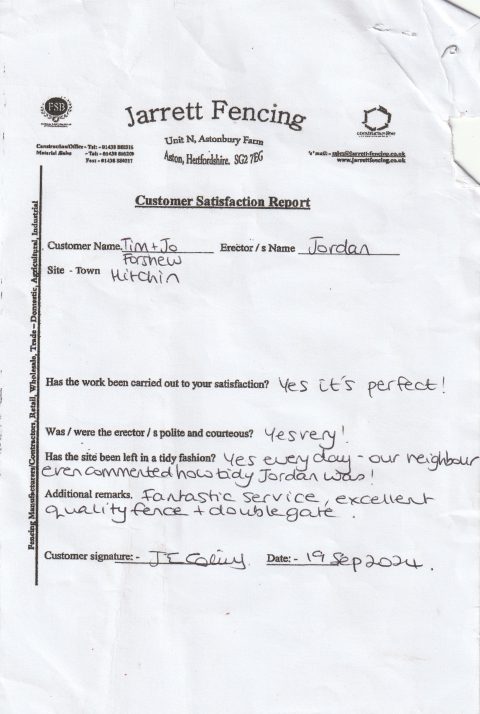 FSB
Jarrett Fencing
Unit N, Astonbury Farm
Aston, Hertfordshire. SG2 7EG
constructionline
Construction/Office - Tel: - 01438
Material Sales - Tel: - 01438
Fax: - 01438
E'mail: - sales@jarrett-fencing.co.uk
www.jarrettfencing.co.uk
Customer Satisfaction Report
Customer Name Tim + Jo Forshew
Erector / s Name Jordan
Site - Town Hitchin
Has the work been carried out to your satisfaction? Yes it's perfect!
Was / were the erector / s polite and courteous? Yes very!
Has the site been left in a tidy fashion? Yes every day - our neighbour
even commented how tidy Jordan was!
Additional remarks. Fantastic service, excellent
quality fence + double gate.
Customer signature: - Date: - 19 Sep 2024.
Fencing Manufacturers/Contractors, Retail, Wholesale, Trade – Domestic, Agricultural, Industrial